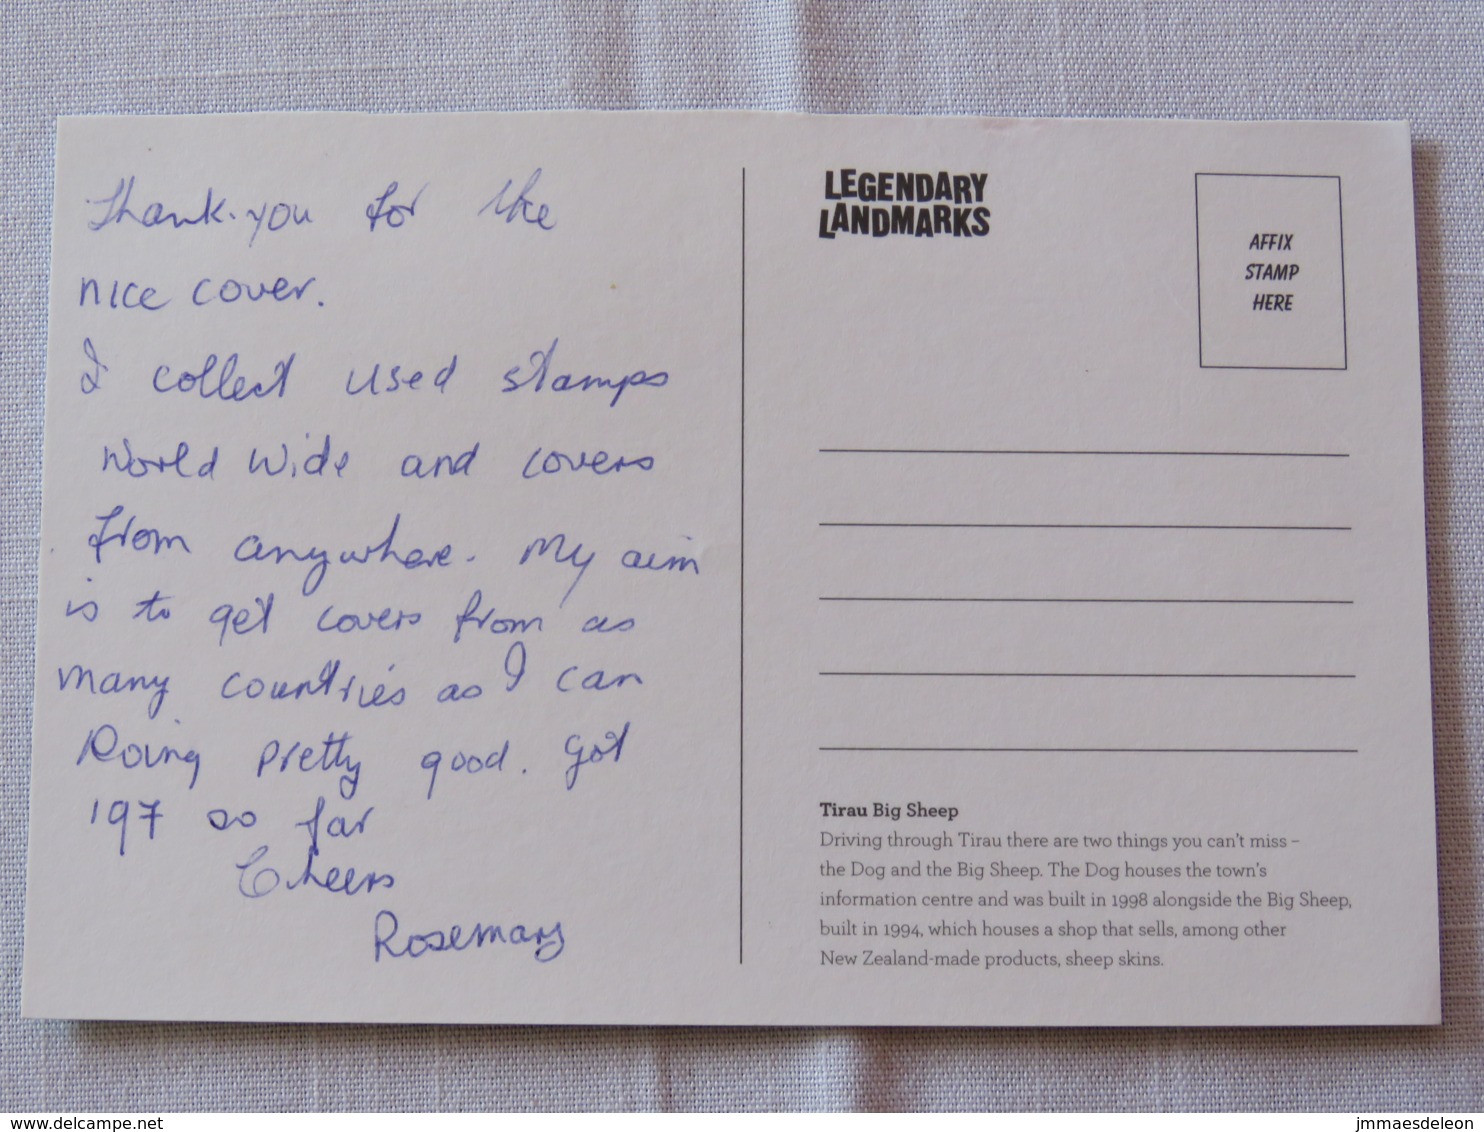 Thank-you for the
nice cover.
I collect used stamps
World Wide and covers
from anywhere. My aim
is to get covers from as
many countries as I can
Doing pretty good. Got
197 so far
Cheers
Rosemary
LEGENDARY
LANDMARKS
AFFIX
STAMP
HERE
Tirau Big Sheep
Driving through Tirau there are two things you can't miss –
the Dog and the Big Sheep. The Dog houses the town's
information centre and was built in 1998 alongside the Big Sheep,
built in 1994, which houses a shop that sells, among other
New Zealand-made products, sheep skins.
www.delcampe.net
jmmaesdeleon